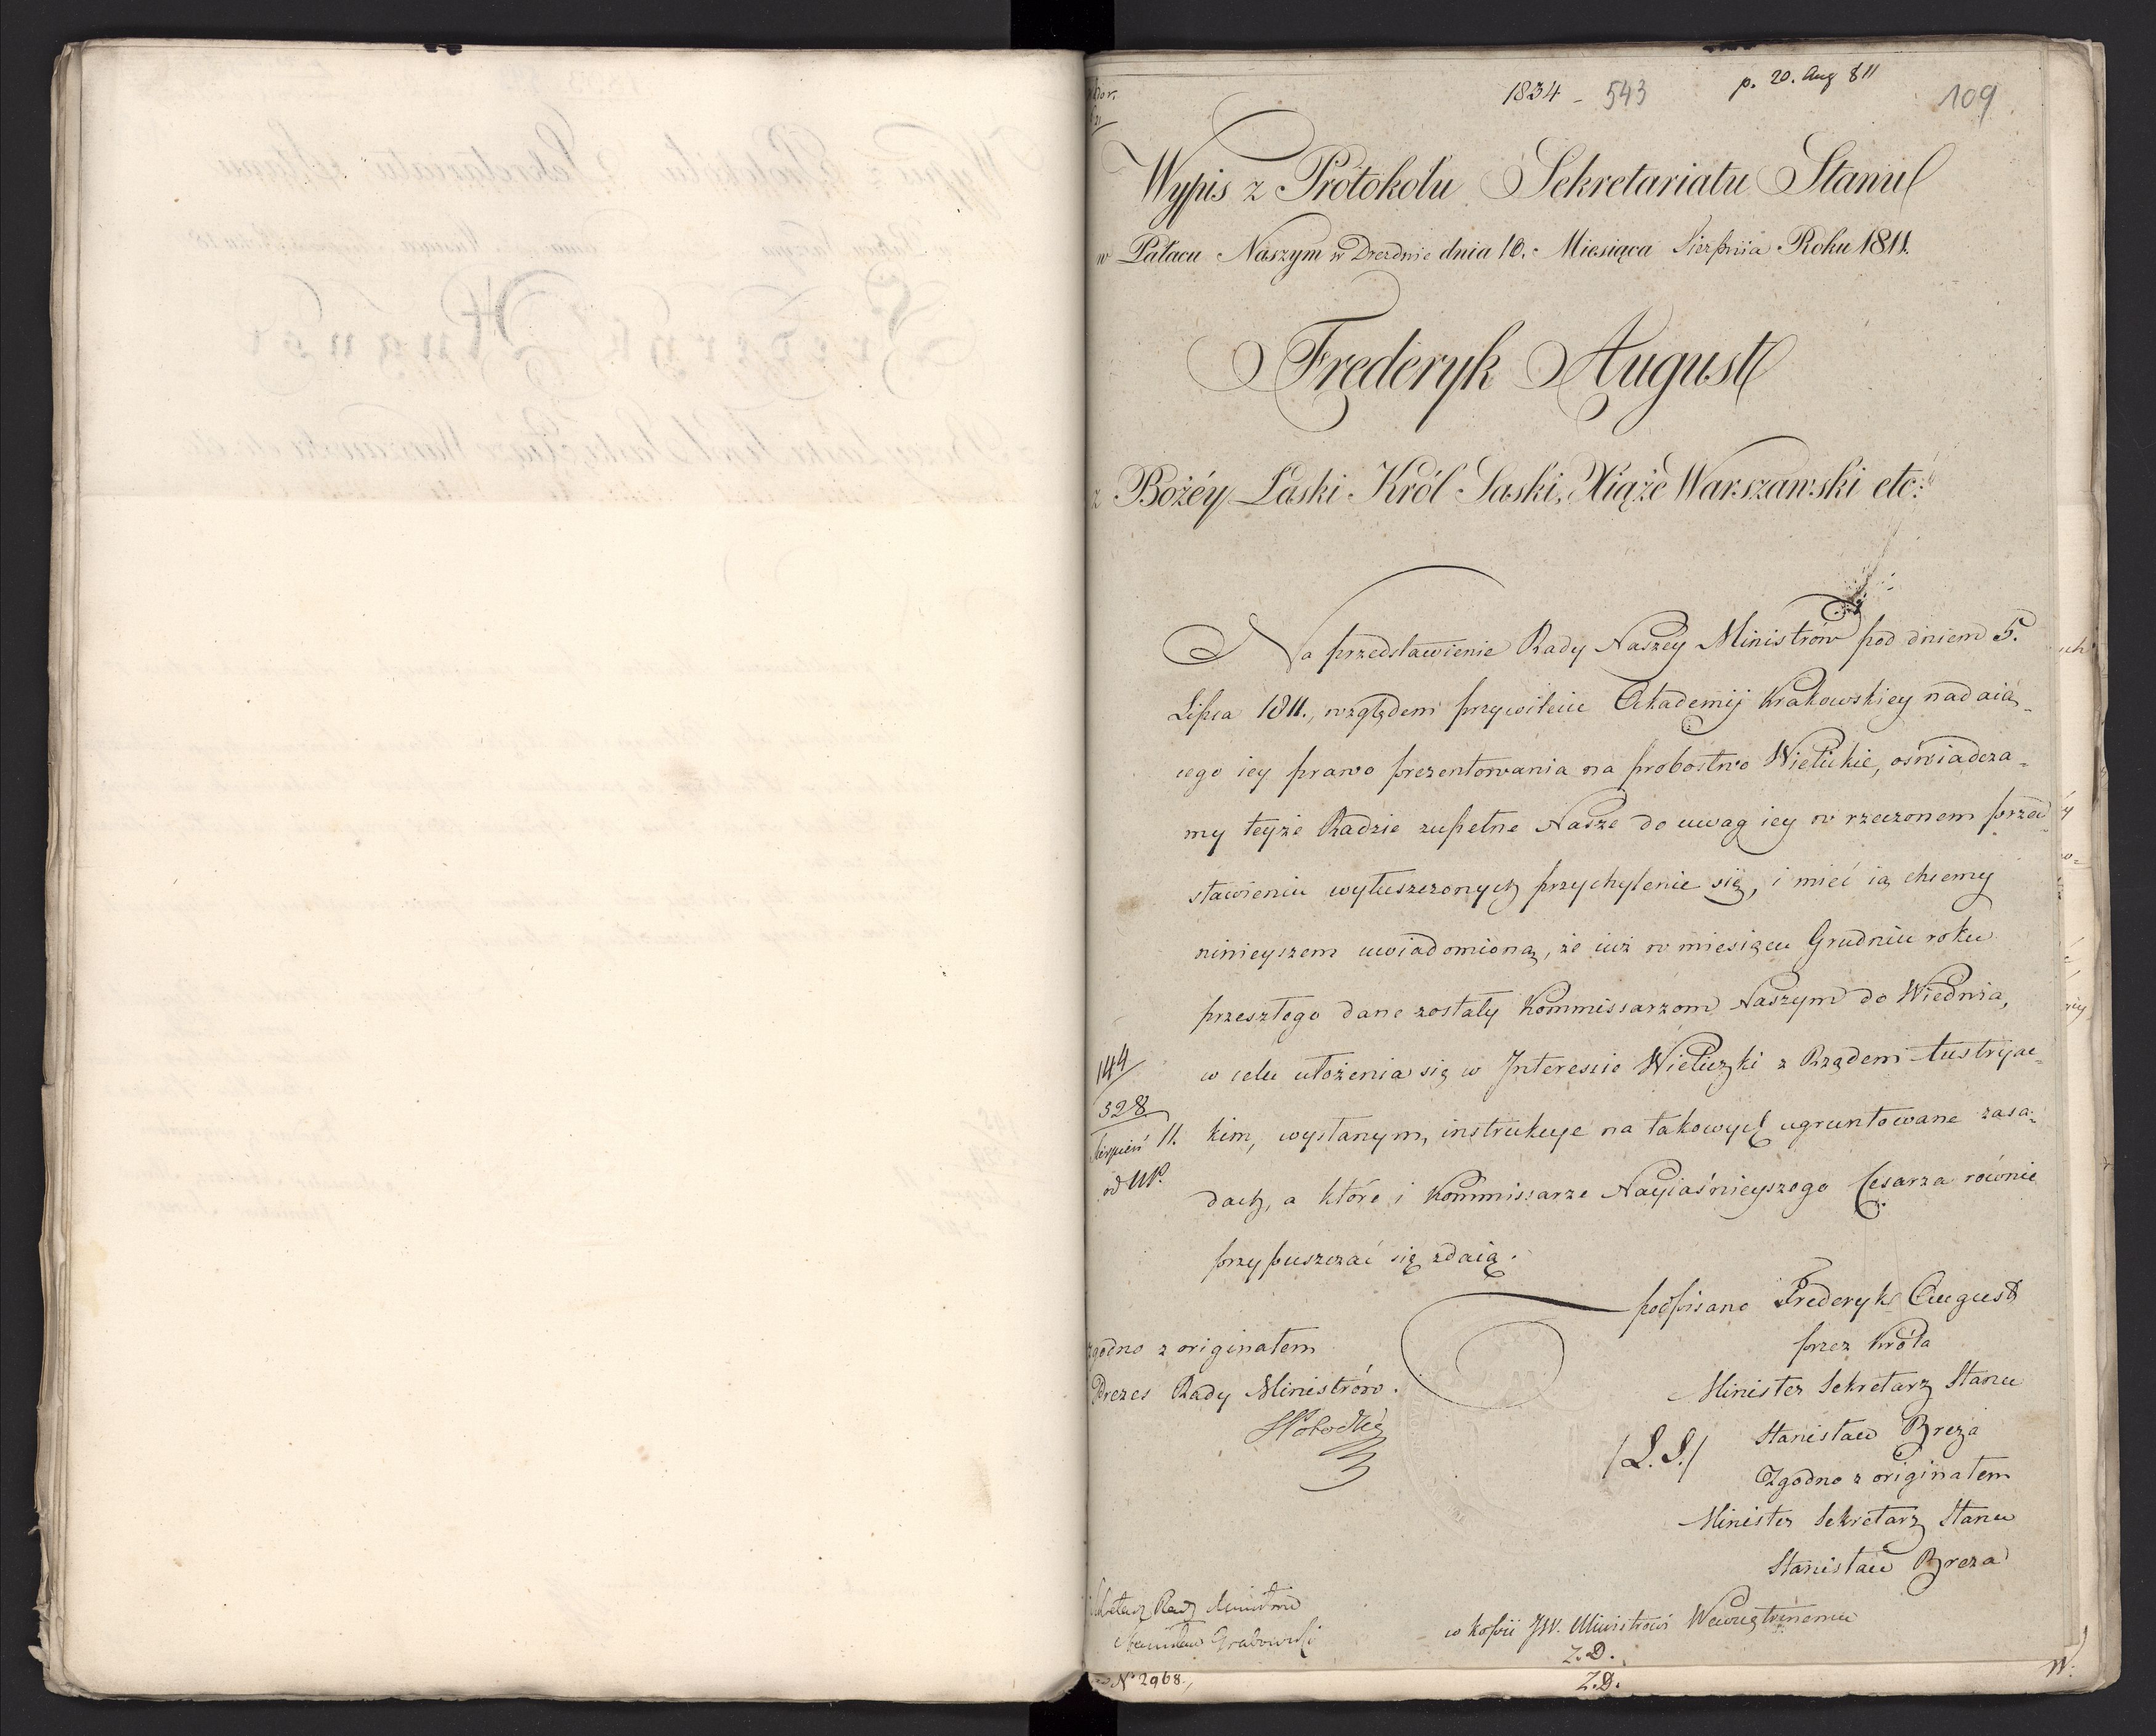 1834 - 543
p. 20. Aug 811
109
Wypis z Protokołu Sekretariatu Stanu
w Pałacu Naszym w Dreźdnie dnia 10. Miesiąca Sierpnia Roku 1811.
Frederyk August
z Bożéy Łaski Król Saski, Xiąże Warszawski etc:
Na przedstawienie Rady Naszey Ministrów pod dniem 5.
Lipca 1811., względem przywileiu Akademij Krakowskiey nadaią-
cego iey prawo prezentowania na probostwo Wielickie, oświadcza-
my teyże Radzie zupełne Nasze do uwag iey w rzeczonem przed-
stawieniu wyłuszczonych przychylenie się, i mieć ią chcemy
ninieyszem uwiadomioną, że iuż w miesiącu Grudniu roku
przeszłego dane zostały Kommissarzom Naszym do Wiednia,
w celu ułożenia się w Interessie Wieliczki z Rządem Austryac-
kim, wysłanym, instrukcye na takowych ugruntowane zasa-
dach, a które i Kommissarze Nayiaśnieyszego Cesarza równie
przypuszczać się zdaią.
144
328
Sierpień 11.
od MP.
podpisano Frederyk August
przez Króla
Minister Sekretarz Stanu
/L.S./ Stanisław Breza
Zgodno z originałem
Minister Sekretarz Stanu
Stanisław Breza
zgodno z originałem
Prezes Rady Ministrów.
Sekretarz Rady Ministrów
Stanisław Grabowski
w kopii JW. Ministrowi Wewnętrznemu
Z.D.
N° 2968.
Z.D.
W: